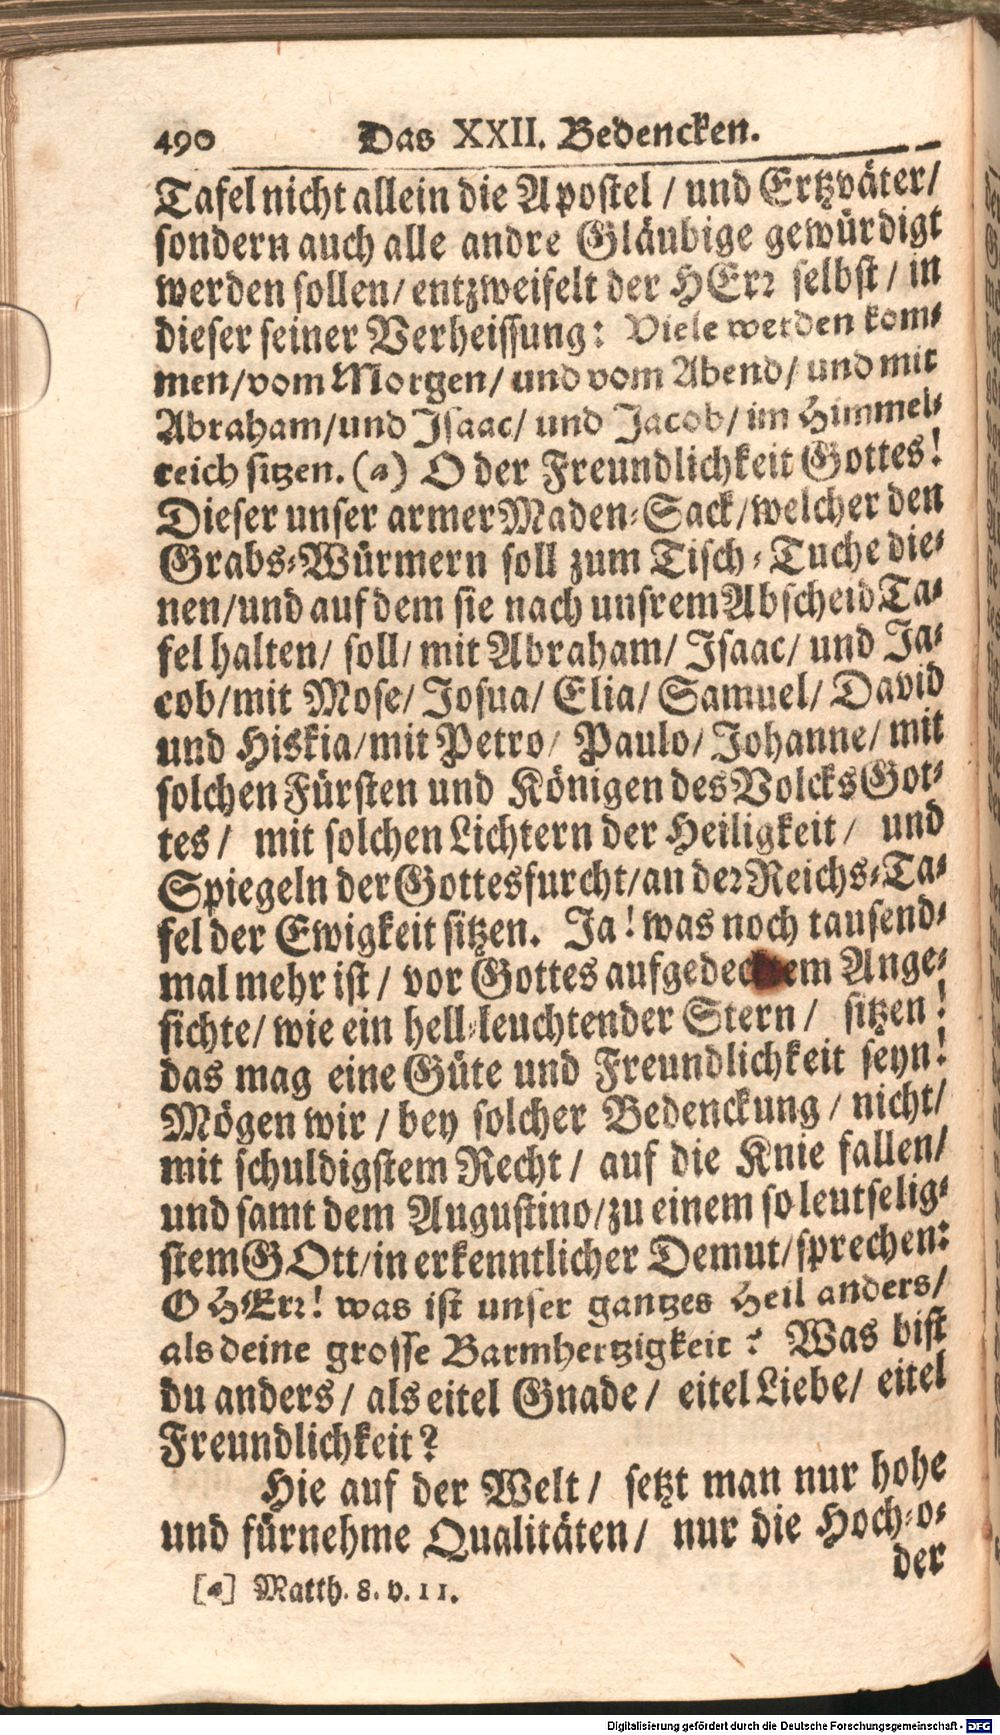 490 Das XXII. Bedencken.
Tafel nicht allein die Apostel / und Ertzväter/
sondern auch alle andre Gläubige gewürdigt
werden sollen/ entzweifelt der HErr selbst / in
dieser seiner Verheissung: Viele werden kom-
men/vom Morgen/ und vom Abend/ und mit
Abraham/und Isaac/ und Jacob/ im Himmel-
reich sitzen. (a) O der Freundlichkeit Gottes!
Dieser unser armer Maden-Sack/welcher den
Grabs-Würmern soll zum Tisch-Tuche die-
nen/und auf dem sie nach unsrem Abscheid Ta-
fel halten/ soll/ mit Abraham/ Isaac/ und Ja-
cob/mit Mose/ Josua/ Elia/ Samuel/ David
und Hiskia/mit Petro/ Paulo/ Johanne/ mit
solchen Fürsten und Königen des Volcks Got-
tes / mit solchen Lichtern der Heiligkeit / und
Spiegeln der Gottesfurcht/an der Reichs-Ta-
fel der Ewigkeit sitzen. Ja! was noch tausend-
mal mehr ist / vor Gottes aufgedecktem Ange-
sichte/ wie ein hell-leuchtender Stern / sitzen!
das mag eine Güte und Freundlichkeit seyn!
Mögen wir / bey solcher Bedenckung / nicht/
mit schuldigstem Recht / auf die Knie fallen/
und samt dem Augustino/zu einem so leutselig-
stem GOtt/in erkenntlicher Demut/sprechen:
O HErr! was ist unser gantzes Heil anders/
als deine grosse Barmhertzigkeit? Was bist
du anders / als eitel Gnade / eitel Liebe/ eitel
Freundlichkeit?
Hie auf der Welt / setzt man nur hohe
und fürnehme Qualitäten/ nur die Hoch-o-
der
[a] Matth. 8. v. 11.
Digitalisierung gefördert durch die Deutsche Forschungsgemeinschaft - DFG